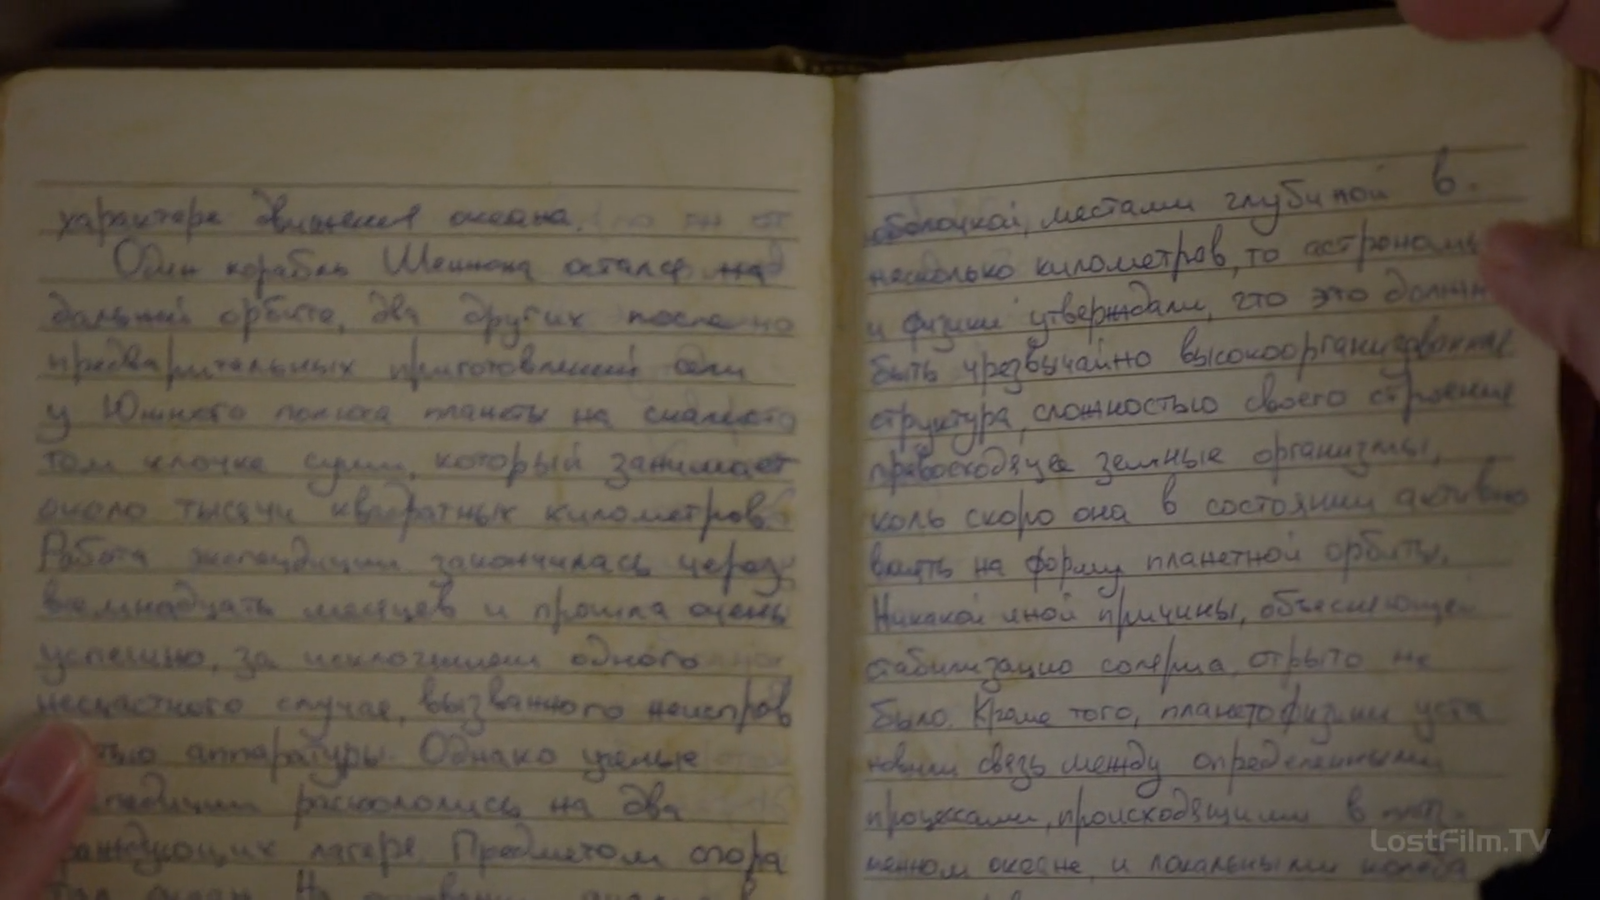 характере движения океана.
Один корабль Шеннона остался на
дальней орбите, два других после
предварительных приготовлений сели
у Южного полюса планеты на скалисто
том клочке суши, который занимает
около тысячи квадратных километров.
Работа экспедиции закончилась через
восемнадцать месяцев и прошла очень
успешно, за исключением одного
несчастного случая, вызванного неисправ
стью аппаратуры. Однако ученые
педиции раскололись на два
раждующих лагеря. Предметом спора
океан. На основании
оболочкой, местами глубиной в
несколько километров, то астрономы
и физики утверждали, что это должн
быть чрезвычайно высокоорганизованная
структура, сложностью своего строения
превосходящее земные организмы,
коль скоро она в состоянии активно
влиять на форму планетной орбиты.
Никакой иной причины, объясняющей
стабилизацию соляриса, открыто не
было. Кроме того, планетофизики уста
новили связь между определенными
процессами, происходящими в
менном океане, и локальными колеба
LostFilm.TV